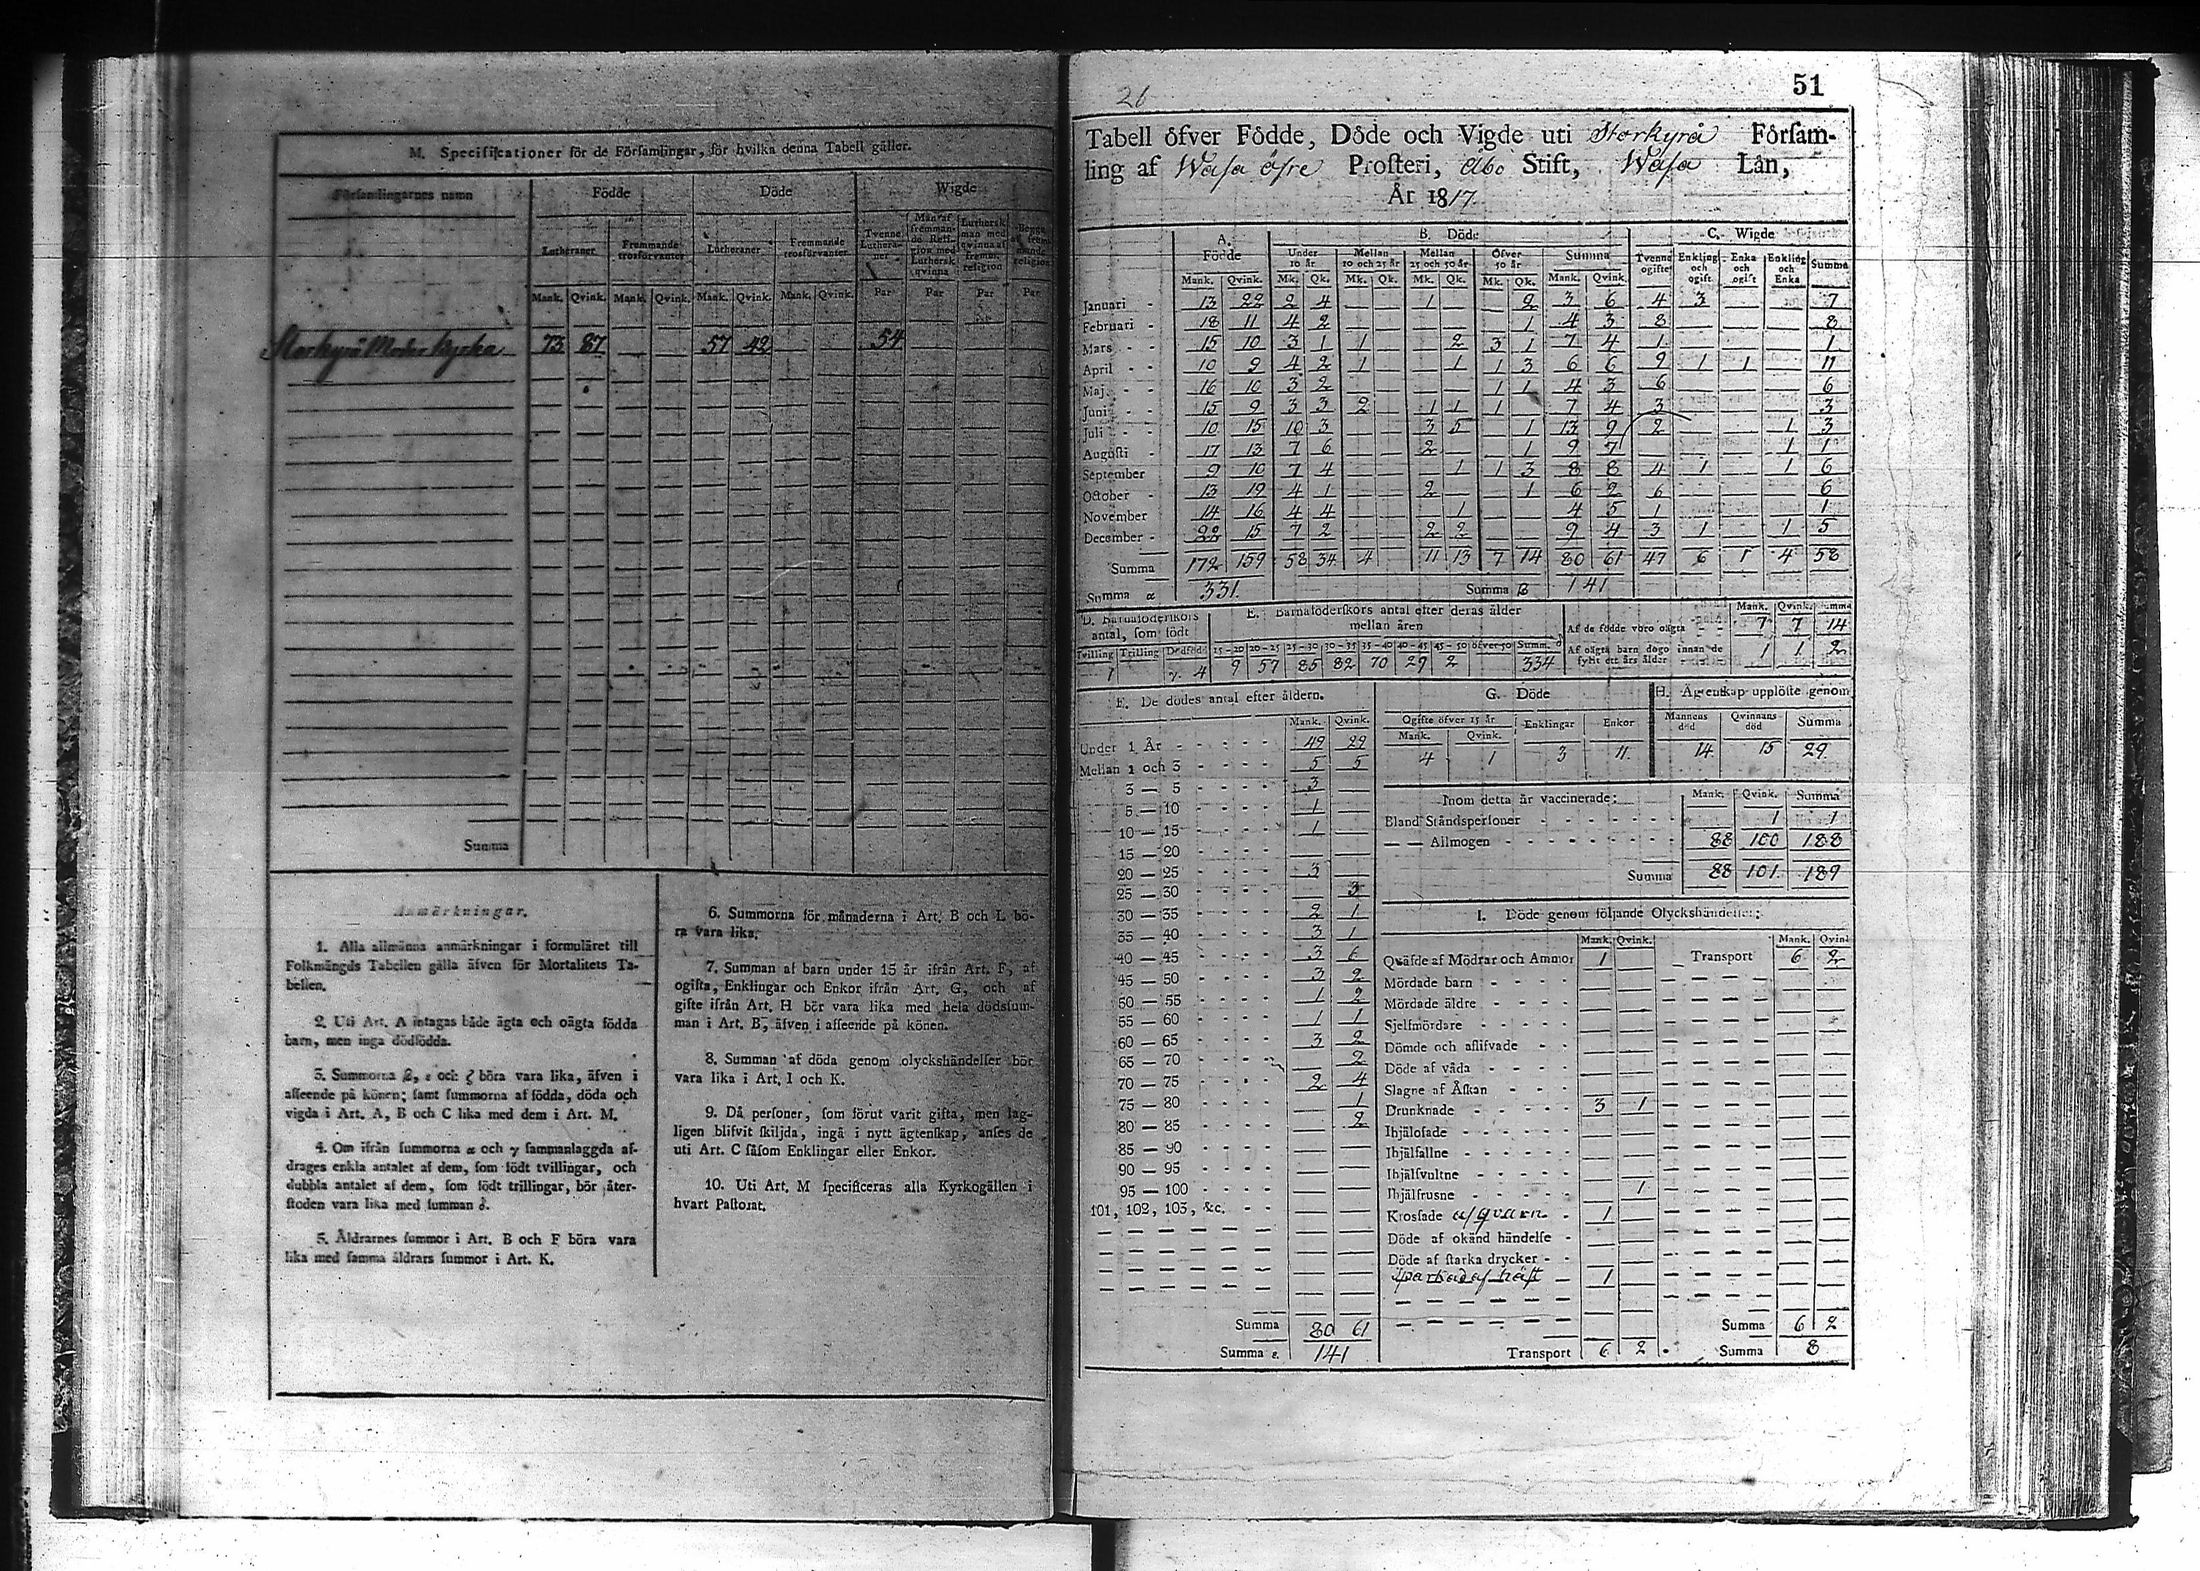 M. Specificationer för de Församlingar, för hvilka denna Tabell gäller.
Församlingarnes namn Födde Döde Wigde
Lutheraner Fremmande trosförvanter Lutheraner Fremmande trosförvanter Tvenne Lutheraner Man af fremmande Religion med Luthersk qvinna Luthersk man med qvinna af fremm. religion
Mank. Qvink. Mank. Qvink. Mank. Qvink. Mank. Qvink. Par Par Par Par
Storkyrö Moder Kyrka 73 87 57 42 54
Summa
Anmärkningar.
1. Alla allmänna anmärkningar i formuläret till
Folkmängds Tabellen gälla äfven för Mortalitets Ta-
bellen.
2. Uti Art. A intagas både ägta och oägta födda
barn, men inga dödfödda.
3. Summorna β, ε och ζ böra vara lika, äfven i
afseende på könen; samt summorna af födda, döda och
vigda i Art. A, B och C lika med dem i Art. M.
4. Om ifrån summorna α och γ sammanlaggda af-
drages enkla antalet af dem, som födt tvillingar, och
dubbla antalet af dem, som födt trillingar, bör åter-
stoden vara lika med summan δ.
5. Åldrarnes summor i Art. B och F böra vara
lika med samma åldrars summor i Art. K.
6. Summorna för månaderna i Art. B och L bö-
ra vara lika.
7. Summan af barn under 15 år ifrån Art. F, af
ogifta, Enklingar och Enkor ifrån Art. G, och af
gifte ifrån Art. H bör vara lika med hela dödssum-
man i Art. B, äfven i afseende på könen.
8. Summan af döda genom olyckshändelser bör
vara lika i Art. I och K.
9. Då personer, som förut varit gifta, men lag-
ligen blifvit skiljda, ingå i nytt ägtenskap, anses de
uti Art. C såsom Enklingar eller Enkor.
10. Uti Art. M specificeras alla Kyrkogällen i
hvart Pastorat.
26
51
Tabell öfver Födde, Döde och Vigde uti Storkyrö Församling
af Wasa öfre Prosteri, Åbo Stift, Wasa Län,
År 1817.
A. Födde B. Döde C. Wigde
Under 10 år Mellan 10 och 25 år Mellan 25 och 50 år Öfver 50 år Summa Tvenne ogifte Enkling och ogift Enka och ogift Enkling och Enka Summa
Mank. Qvink. Mk. Qk. Mk. Qk. Mk. Qk. Mk. Qk. Mank. Qvink.
Januari 13 22 2 4 1 2 3 6 4 3 7
Februari 18 11 4 2 1 4 3 8 8
Mars 15 10 3 1 1 2 3 1 7 4 1 1
April 10 9 4 2 1 1 1 3 6 6 9 1 1 11
Maj 16 10 3 2 1 1 4 3 6 6
Juni 15 9 3 3 2 1 1 1 7 4 3 3
Juli 10 15 10 3 3 5 1 13 9 2 1 3
Augusti 17 13 7 6 2 1 9 7 1 1
September 9 10 7 4 1 1 3 8 8 4 1 1 6
October 13 19 4 1 2 1 6 2 6 6
November 14 16 4 4 1 4 5 1 1
December 22 15 7 2 2 2 9 4 3 1 1 5
Summa 172 159 58 34 4 11 13 7 14 80 61 47 6 1 4 58
Summa α 331. Summa β 141
D. Barnaföderskors antal, som födt
Tvilling Trilling Dödfödd
1 γ. 4
E. Barnaföderskors antal efter deras ålder mellan åren
15-20 20-25 25-30 30-35 35-40 40-45 45-50 öfver 50 Summ. δ
9 57 85 82 70 29 2 334
Mank. Qvink. Summa
Af de födde voro oägta 7 7 14
Af oägta barn dogo innan de fyllt ett års ålder 1 1 2
F. De dödes antal efter åldern.
Mank. Qvink.
Under 1 År 49 29
Mellan 1 och 3 5 5
3 — 5 3
5 — 10 1
10 — 15 1
15 — 20
20 — 25 3
25 — 30 3
30 — 35 2 1
35 — 40 3 1
40 — 45 3 6
45 — 50 3 2
50 — 55 1 2
55 — 60 1 1
60 — 65 3 2
65 — 70 2
70 — 75 2 4
75 — 80 1
80 — 85 2
85 — 90
90 — 95
95 — 100
101, 102, 103, &c.
Summa 80 61
Summa ε. 141
G. Döde
Ogifte öfver 15 år Enklingar Enkor
Mank. Qvink.
4 1 3 11
H. Ägtenskap upplöste genom
Mannens död Qvinnans död Summa
14 15 29
Inom detta år vaccinerade: Mank. Qvink. Summa
Bland Ståndspersoner 1 1
— — Allmogen 88 100 188
Summa 88 101 189
I. Döde genom följande Olyckshändelser:
Mank. Qvink. Mank. Qvink
Qväfde af Mödrar och Ammor 1 Transport 6 2
Mördade barn
Mördade äldre
Sjelfmördare
Dömde och aflifvade
Döde af våda
Slagne af Åskan
Drunknade 3 1
Ihjälosade
Ihjälfallne
Ihjälsvultne
Ihjälfrusne 1
Krossade af qvarn 1
Döde af okänd händelse
Döde af starka drycker
sparkad af häst 1
Summa 6 2
Transport 6 2 Summa 8